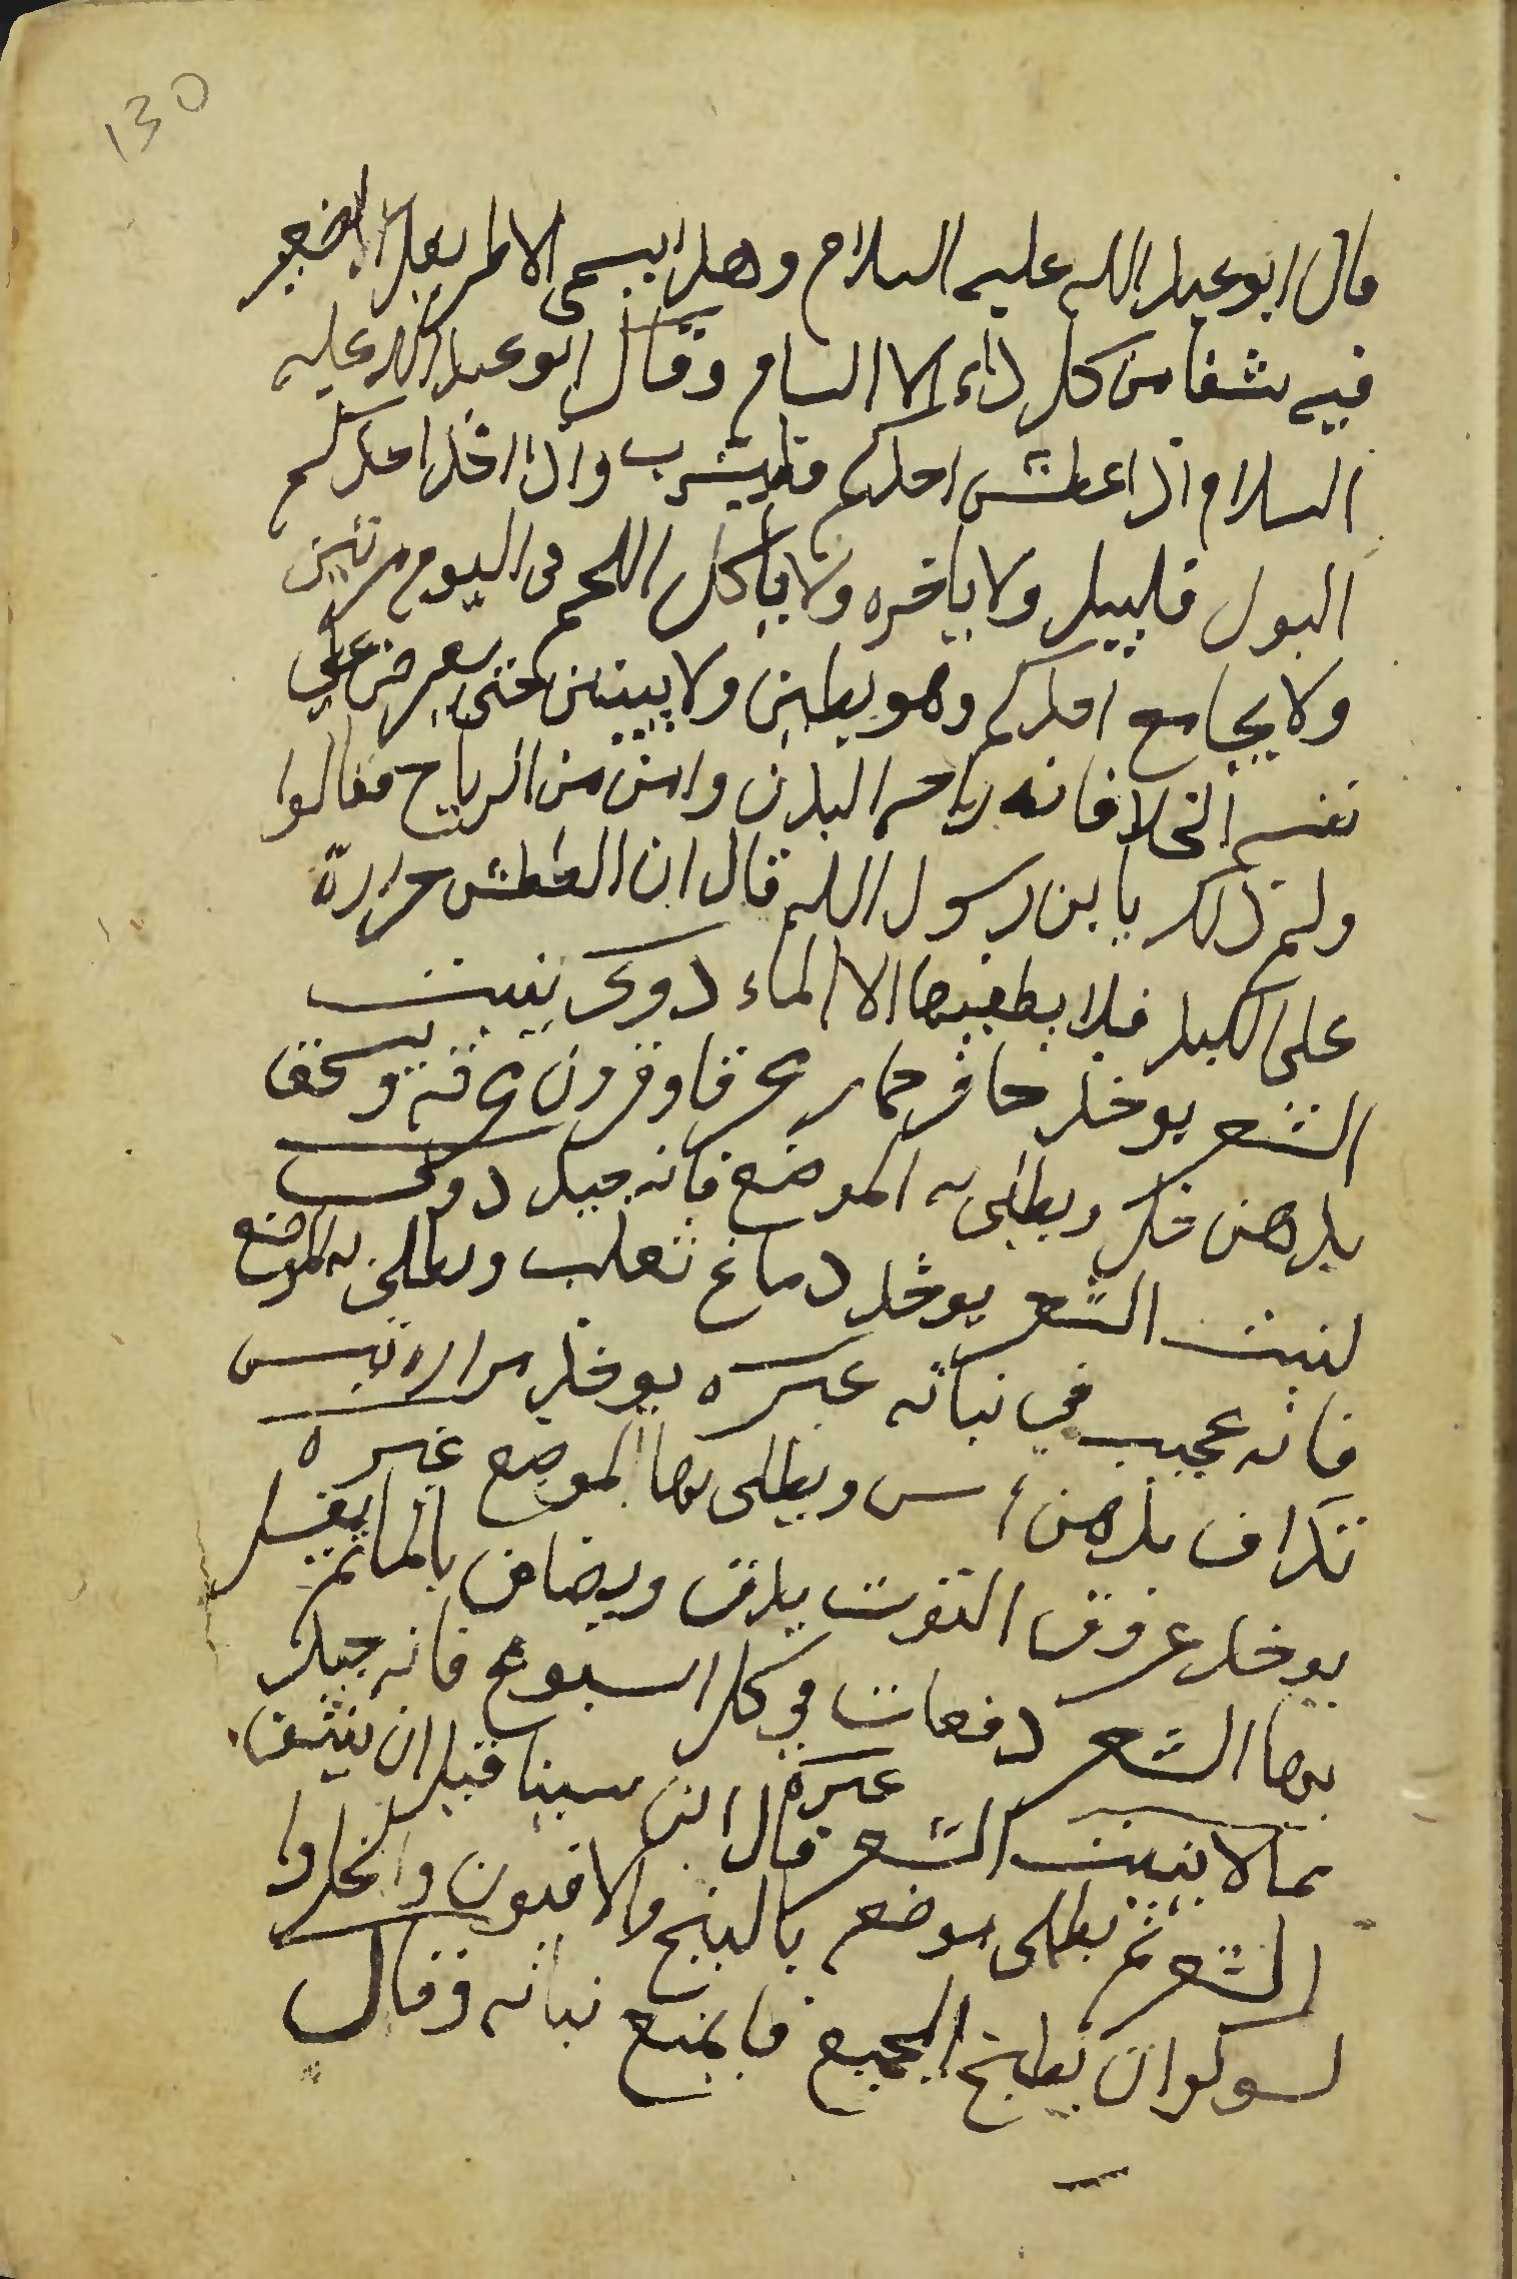 130
قال ابو عبد الله عليه السلام وهذا يسمى الاطريفل الاصغر
فيه شفا من كل داء الا السام وقال ابو عبد الله عليه
السلام اذا عطش احدكم فليشرب واذا اخذ احدكم
البول فليبيل ولا ياخره ولا ياكل اللحم فى اليوم مرتين
ولا يجامع احدكم وهو بطين ولا يبيتن حتى يعرض على
نفسه الخلا فانه راحه البدن وامن من الرياح فقالوا
ولم ذلك يا بن رسول الله قال ان العطش حرارة
على الكبد فلا يطفيها الا الماء دوى ينبت
الشعر يوخذ حافر حمار محرقا وقرون محرقه ويسحق
بدهن خل ويطلى به الموضع فانه جيد دوى
لنبت الشعر يوخذ دماغ ثعلب ويطلى به الموضع
فانه عجيب في نباته غيره يوخذ مرارة تيس
تداف بدهن اس ويطلى بها الموضع غيره
يوخذ عروق التوت يدق ويضاف بالما ثم يغسل
بها الشعر دفعات في كل اسبوع فانه جيد
غيره
مما لا ينبت الشعر قال ابن سينا قبل ان ينتف
الشعر ثم يطلى موضعه بالبنج والافيون والخل وا
لسوكران يطبخ الجميع فا يمنع نباته وقال